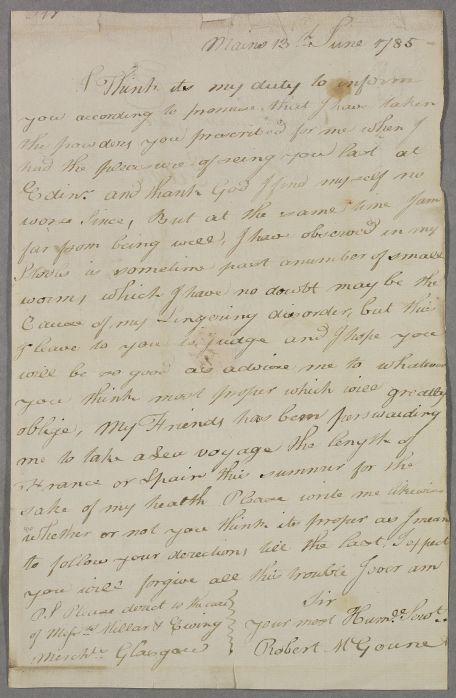 Mains 13th June 1785
I Think its my duty to inform
you according to promise that I have taken
the powders you prescrited for me when I
had the pleasure of seing you last at
Edinr and thank God I find myself no
worse Since, But at the same time I am
far from being well, I have observed in my
Stools a sometime past a number of small
worms, which I have no doubt may be the
Cause of my Lingering disorder, but this
I leave to you to judge and I hope you
will be so good as advise me to whatever
you think most proper which will greatly
oblige, My Friends has been perswaiding
me to take a Sea voyage the length of
France or Spain this summer for the
sake of my health Please write me likewise
whether or not you think its proper as I mean
to follow your derections till the last, I expect
you will forgive all this trouble I ever am
Sir
your most Humble Servt
Robert McGoune
P.S Please derect to the care
of Messrs Millar & Ewing
Merchts Glasgow